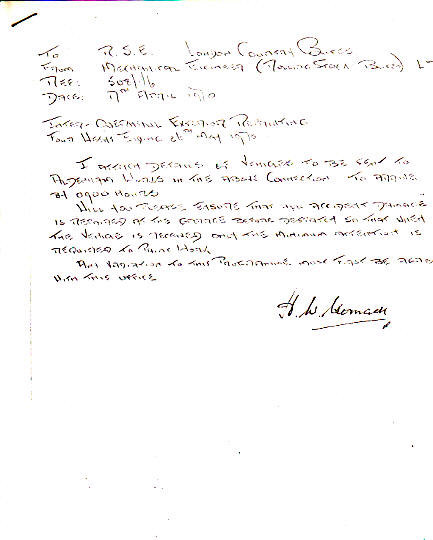 To R.S.E. London Country Buses
From Mechanical Engineer (Rolling Stock Buses)
REF: 502/16
DATE: 17th April 1970
Inter-Overhaul Exterior Repainting
Four Weeks Ending May 1970
I attach details of vehicles to be sent to
Aldenham Works in the above connection to arrive
at 0900 hours
Will you please ensure that any accident damage
is repaired at the garage before despatch so that when
the vehicle is received only the minimum attention is
required to paint work
Any variation to this programme must first be agreed
with this office
H. W.